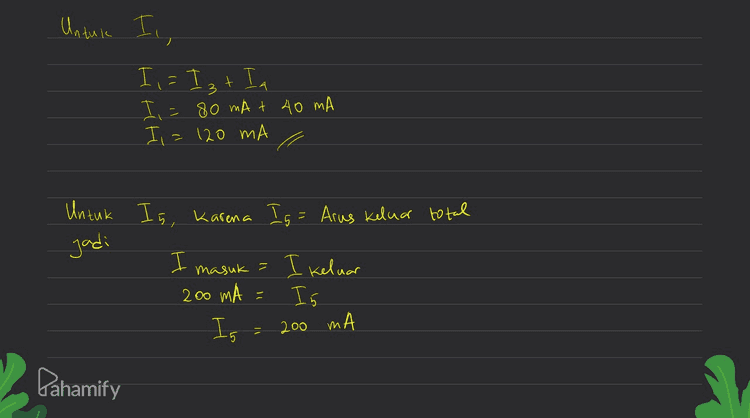 Untuk I₁,
I₁ = I₃ + I₄
I₁ = 80 mA + 40 mA
I₁ = 120 mA
Untuk I₅, karena I₅ = Arus keluar total
jadi
I masuk = I keluar
200 mA = I₅
I₅ = 200 mA
Pahamify